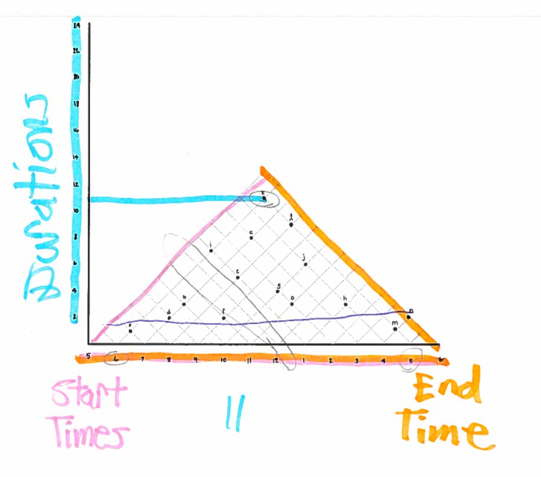 Durations
24
22
20
18
16
14
12
10
8
6
4
2
e
i
j
c
g
b
o
h
d
f
m
5 6 7 8 9 10 11 12 1 2 3 4 5 6
Start
Times
11
End
Time